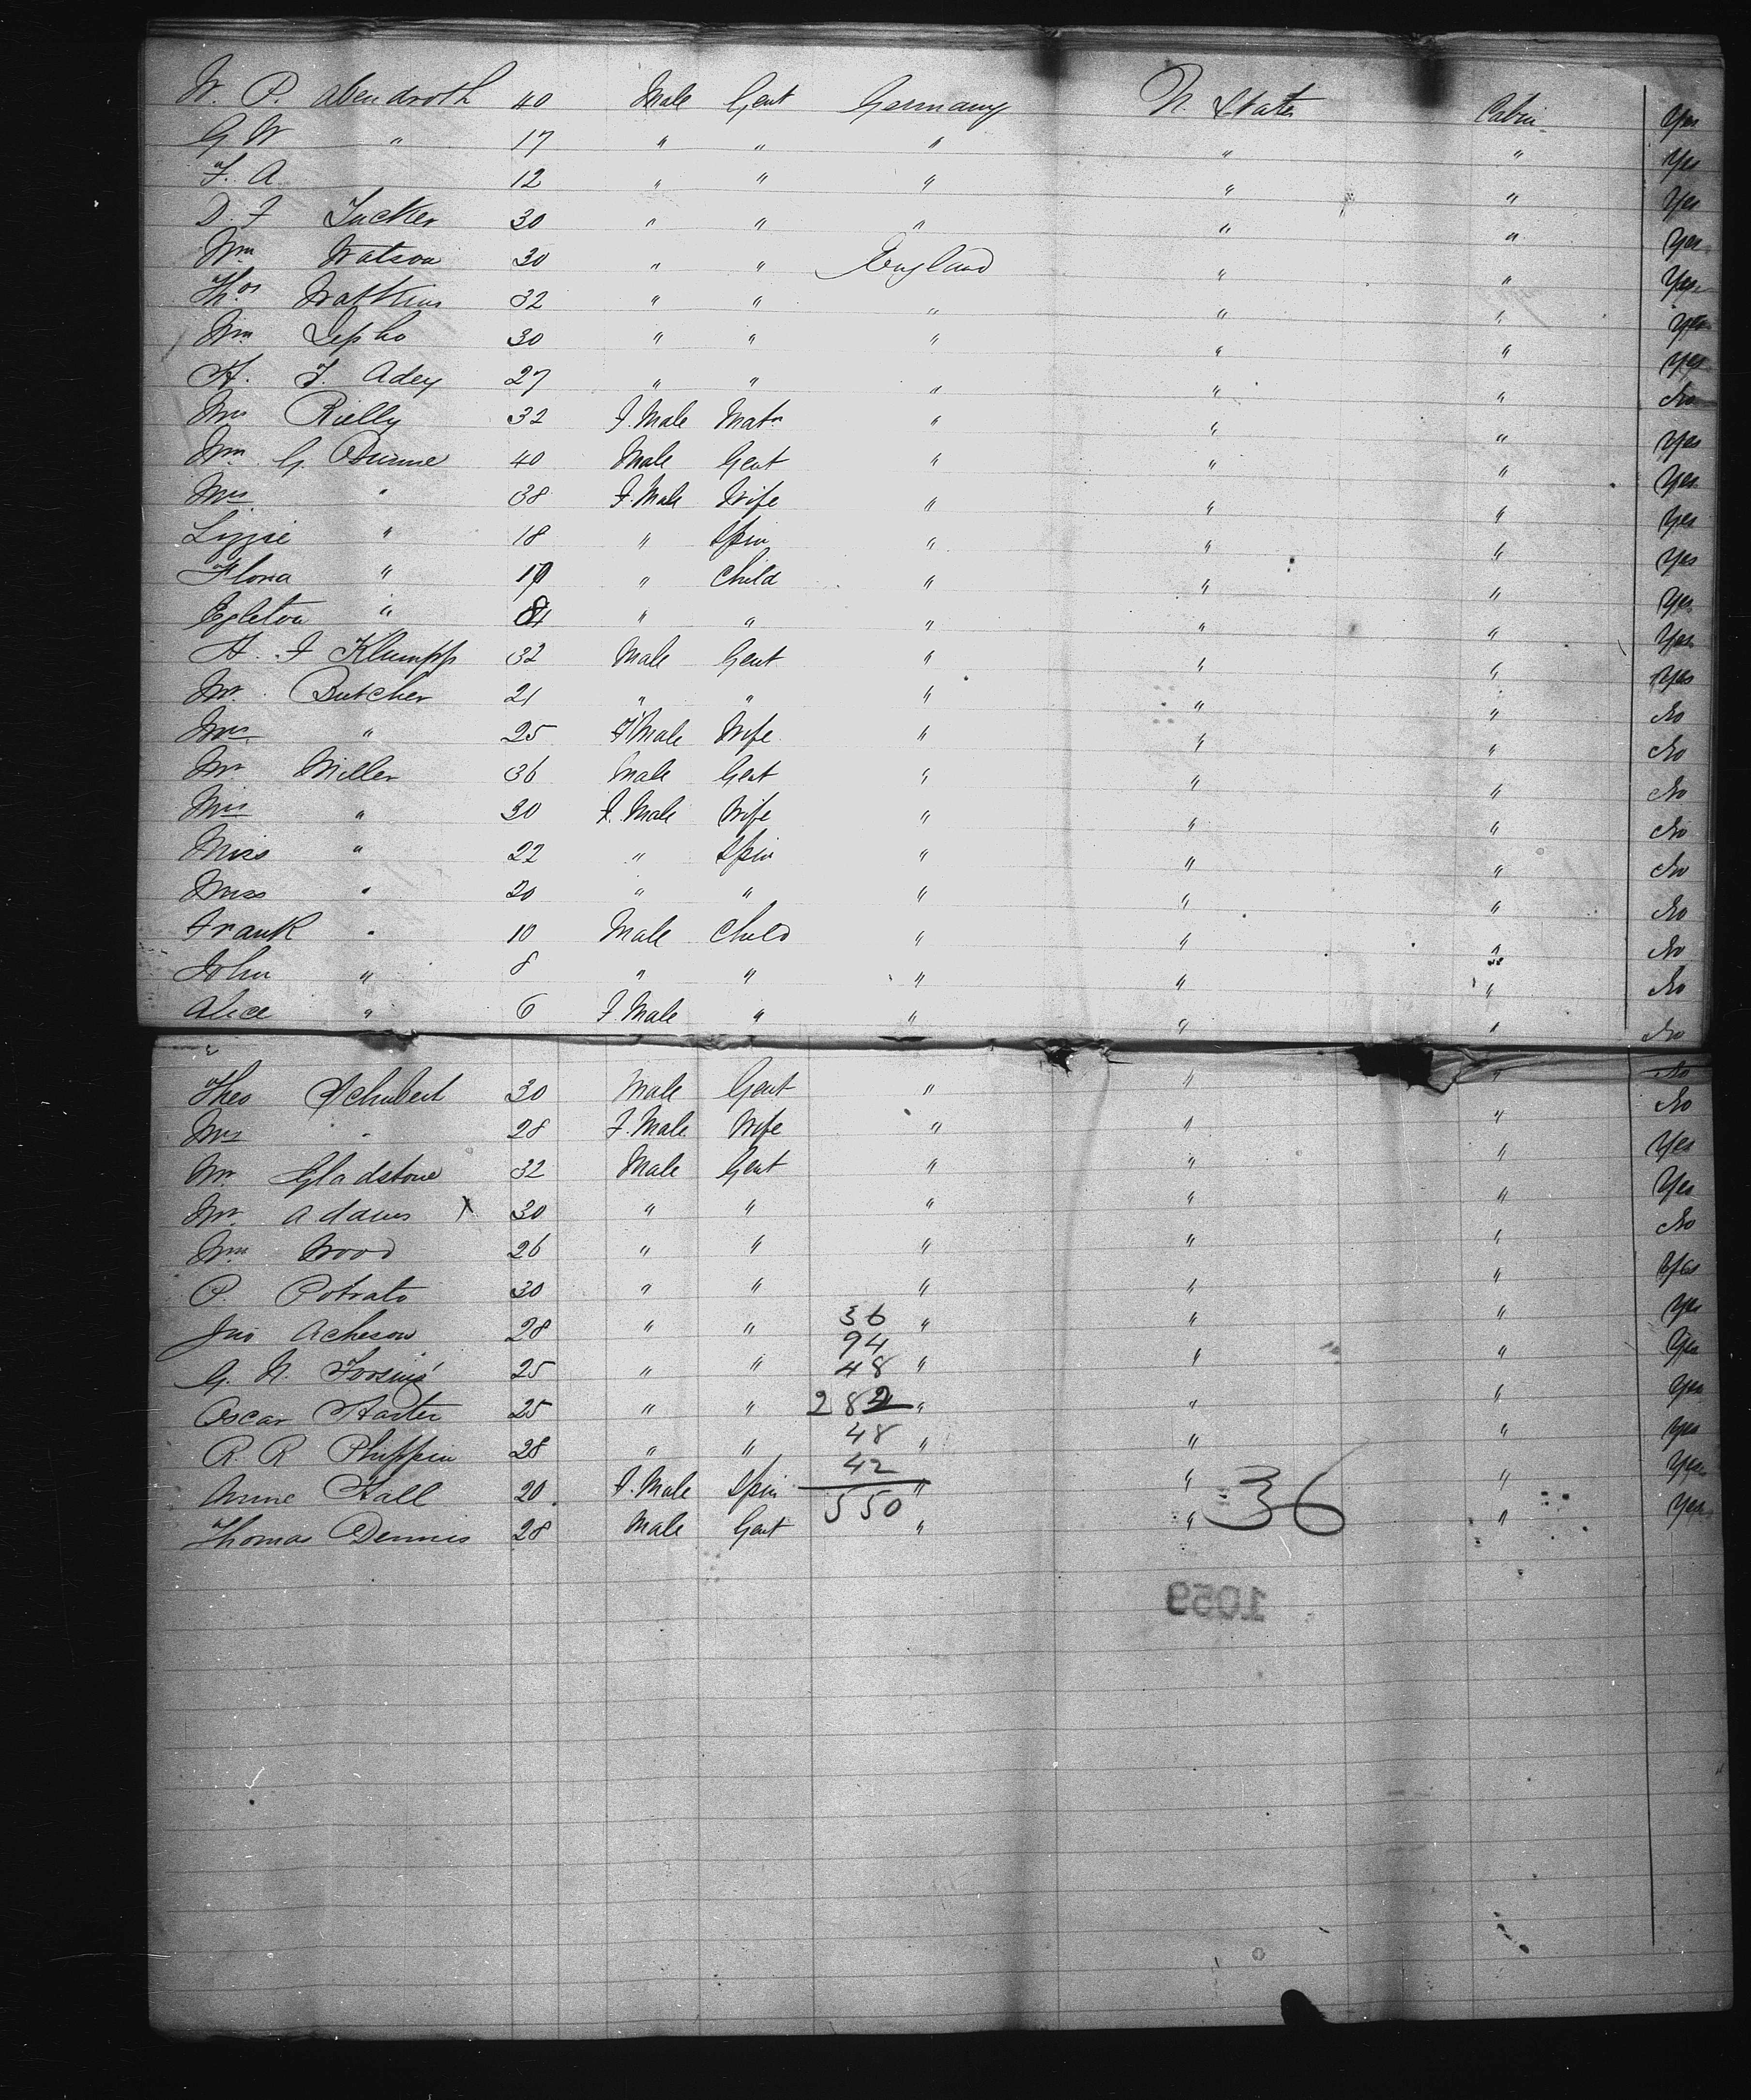 W. P. Abendroth 40 Male Gent Germany U. States Cabin Yes
G W " 17 " " " " " Yes
F. A 12 " " " " " Yes
D. F Tucker 30 " " " " " Yes
Wm Watson 30 " " England " " Yes
Thos Watkins 32 " " " " " Yes
Wm Jepho 30 " " " " " Yes
H. F. Adey 27 " " " " " No
Mrs Rielly 32 F. Male Matn " " " Yes
Wm G. Dunne 40 Male Gent " " " Yes
Mrs " 38 F. Male Wife " " " Yes
Lizzie " 18 " Spin " " " Yes
Flora " " Child " " " Yes
Egleton " " " " " " Yes
H. F Klumpp 32 Male Gent " " " Yes
Mr. Butcher 21 " " " " " No
Mrs " 25 F Male Wife " " " No
Mr Miller 36 Male Gent " " " No
Mrs " 30 F. Male Wife " " " No
Miss " 22 " Spin " " " No
Miss " 20 " " " " " No
Frank " 10 Male Child " " " No
John " 8 " " " " " No
Alice " 6 F. Male " " " " No
Theo Schubert 30 Male Gent " " " No
Mrs " 28 F. Male Wife " " " No
Mr. Gladstone 32 Male Gent " " " Yes
Mr. Adams X 30 " " " " " Yes
Wm Wood 26 " " " " " No
P. Potrato 30 " " " " " Yes
Jno Acheson 28 " " 36 " " " Yes
94
G. N. 25 " " 48 " " " Yes
Oscar Harter 25 " " 282 " " " Yes
R. R Phippin 28 " " 48 " " " Yes
42
Anne Hall 20 F. Male Spin " " " Yes
550 36
Thomas Dennis 28 Male Gent " " " Yes
1059